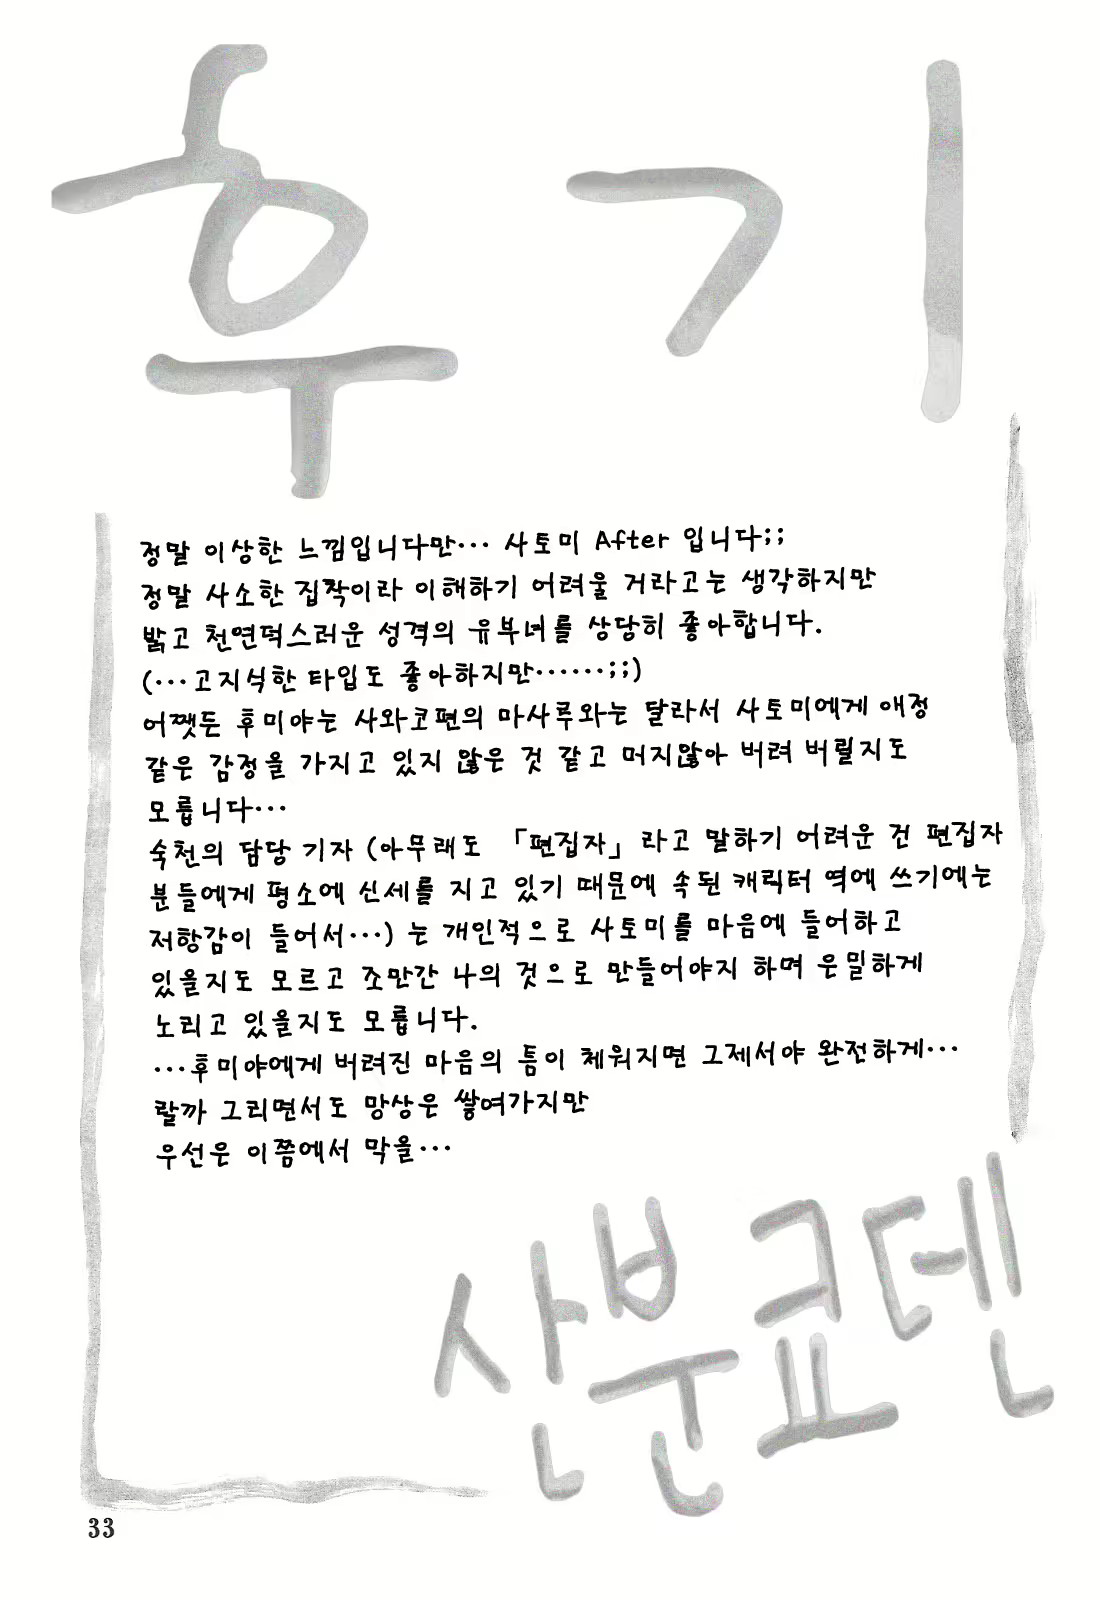 후기
정말 이상한 느낌입니다만… 사토미 After 입니다;;
정말 사소한 집착이라 이해하기 어려울 거라고는 생각하지만
밝고 천연덕스러운 성격의 유부녀를 상당히 좋아합니다.
(…고지식한 타입도 좋아하지만……;;)
어쨋든 후미야는 사와코편의 마사루와는 달라서 사토미에게 애정
같은 감정을 가지고 있지 않은 것 같고 머지않아 버려 버릴지도
모릅니다…
숙천의 담당 기자 (아무래도 「편집자」 라고 말하기 어려운 건 편집자
분들에게 평소에 신세를 지고 있기 때문에 속된 캐릭터 역에 쓰기에는
저항감이 들어서…) 는 개인적으로 사토미를 마음에 들어하고
있을지도 모르고 조만간 나의 것으로 만들어야지 하며 은밀하게
노리고 있을지도 모릅니다.
…후미야에게 버려진 마음의 틈이 체워지면 그제서야 완전하게…
랄까 그리면서도 망상은 쌓여가지만
우선은 이쯤에서 막을…
산분쿄덴
33